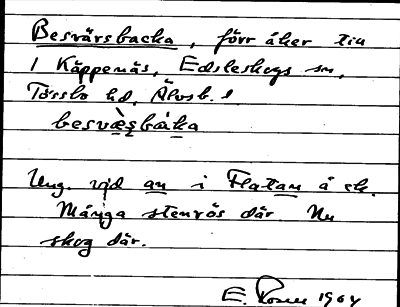 Besvärsbacka, förr åker till
1 Käppenäs, Edsleskogs sn,
Tössbo hd, Älvsb. l
besvæ̀sbáka
Ung. vid an i Flatan å ek.
Många stenrös där. Nu
skog där.
E. 1964